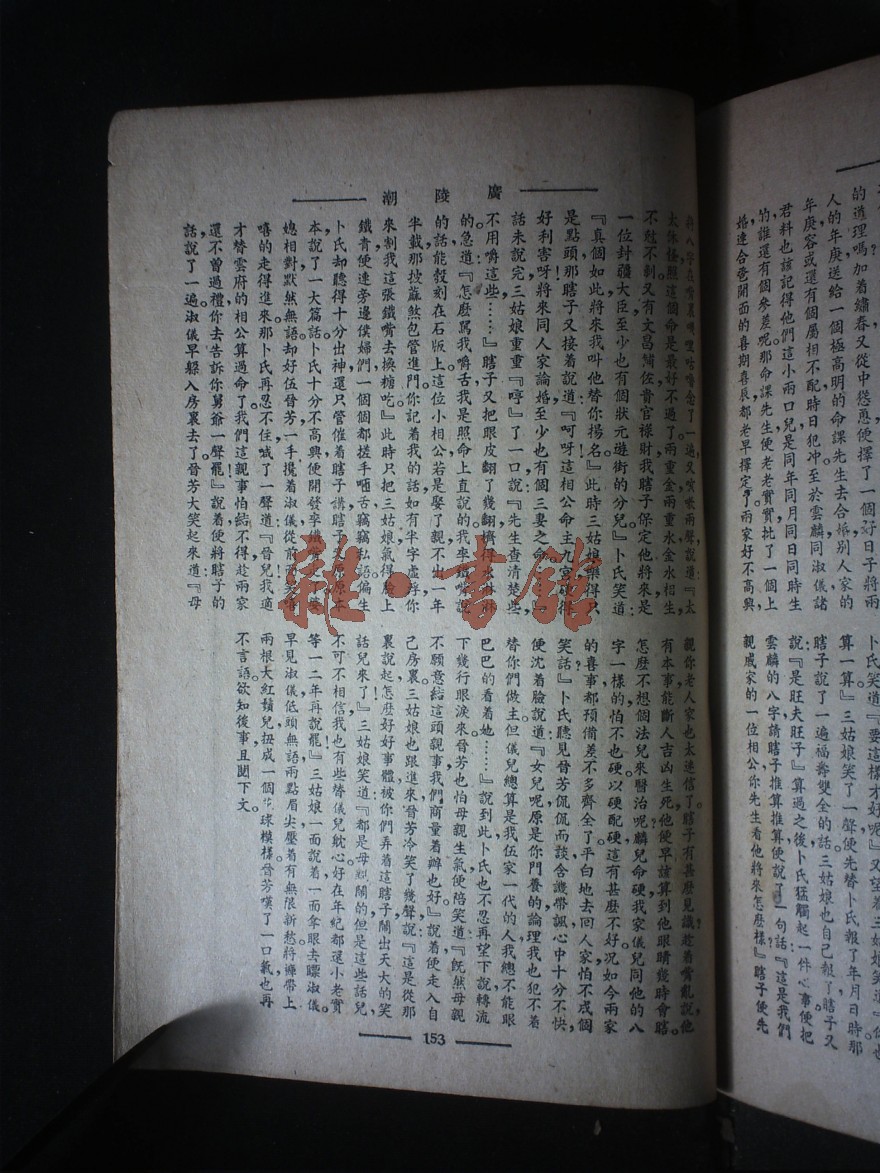 廣陵潮
太保
這個命是最好不過了兩重金兩重水金水相生
不尅不剝又有文昌輔佐貴官祿財我瞎子保定他將來是
一位封疆大臣至少也有個狀元遊街的分兒』卜氏笑道
『真個如此將來我叫他替你揚名』此時三姑娘樂得只
是點頭那瞎子又接着說道『呵呀這相公命主九宮
好利害呀將來同人家論婚至少也有個三妻之命
話未說完三姑娘重重『啍』了一口說『先生查清楚些
不用嚼這些……』瞎子又把眼皮翻了幾翻
的急道『怎麽罵我嚼舌我是照命上直說的我李鐵嘴說
的話能彀刻在石版上這位小相公若是娶了親不出一年
半載那披蔴煞包管進門你記着我的話如有半字虛浮你
來割我這張鐵嘴去換糖吃』此時只把三姑娘氣得臉上
鐵青便連旁邊僕婦們一個個都搓手咂舌竊竊私語偏生
卜氏却聽得十分出神還只管催着瞎子講瞎子又原原本
本說了一大篇話卜氏十分不高興便開發李鐵嘴
媳相對默然無語却好伍晉芳一手攙着淑儀從前面笑嘻
嘻的走得進來那卜氏再忍不住喊了一聲道『晉兒我適
才替雲府的相公算過命了我們這親事怕結不得趁兩家
還不曾過禮你去告訴你舅爺一聲罷』說着便將瞎子的
話說了一遍淑儀早躱入房裏去了晉芳大笑起來道『母
親你老人家也太迷信了瞎子有甚麽見識趁着嘴亂說他
有本事能斷人吉凶生死他便早該算到他眼睛幾時會瞎
怎麽不想個法兒來醫治呢麟兒命硬我家儀兒同他的八
字一樣的怕不也硬以硬配硬這有甚麽不好況如今兩家
的喜事都預備差不多齊全了平白地去回人家怕不成個
笑話』卜氏聽見晉芳侃侃而談含譏帶諷心中十分不快
便沈着臉說道『女兒呢原是你門養的論理我也犯不着
替你們做主但儀兒總算是我伍家一代的人我總不能眼
巴巴的看着她……』說到此卜氏也不忍再望下說轉流
下幾行眼淚來晉芳也怕母親生氣便陪笑道『旣然母親
不願意結這頭親事我們商量着辦也好』說着便走入自
己房裏三姑娘也跟進來晉芳冷笑了幾聲說『這是從那
裏說起怎麽好好事體被你們弄着這瞎子鬧出天大的笑
話兒來了』三姑娘笑道『都是母親鬧的但是這些話兒
不可不相信我也有些替儀兒躭心好在年紀都還小老實
等一二年再說罷』三姑娘一面說着一面拿眼去瞟淑儀
早見淑儀低頭無語兩點眉尖壓着有無限新愁將褲帶上
兩根大紅鬚兒扭成一個花球模樣晉芳嘆了一口氣也再
不言語欲知後事且閱下文
153
的道理嗎加着繡春又從中慫恿便擇了一個好日子將兩
人的年庚送給一個極高明的命課先生去合婚別人家的
年庚容或還有個屬相不配時日犯冲至於雲麟同淑儀諸
君料也該記得他們這小兩口兒是同年同月同日同時生
的誰還有個參差呢那命課先生便老老實實批了一個上
婚連合巹開面的喜期喜辰都老早擇定了兩家好不高興
卜氏笑道『要這樣才好呢』又望着三姑娘笑道
算一算』三姑娘笑了一聲便先替卜氏報了年月日時那
瞎子說了一遍福壽雙全的話三姑娘也自己報了瞎子又
說『是旺夫旺子』算過之後卜氏猛觸起一件心事便把
雲麟的八字請瞎子推算推算便說了一句話『這是我們
親戚家的一位相公你先生看他將來怎麽樣』瞎子便先
雜·書館